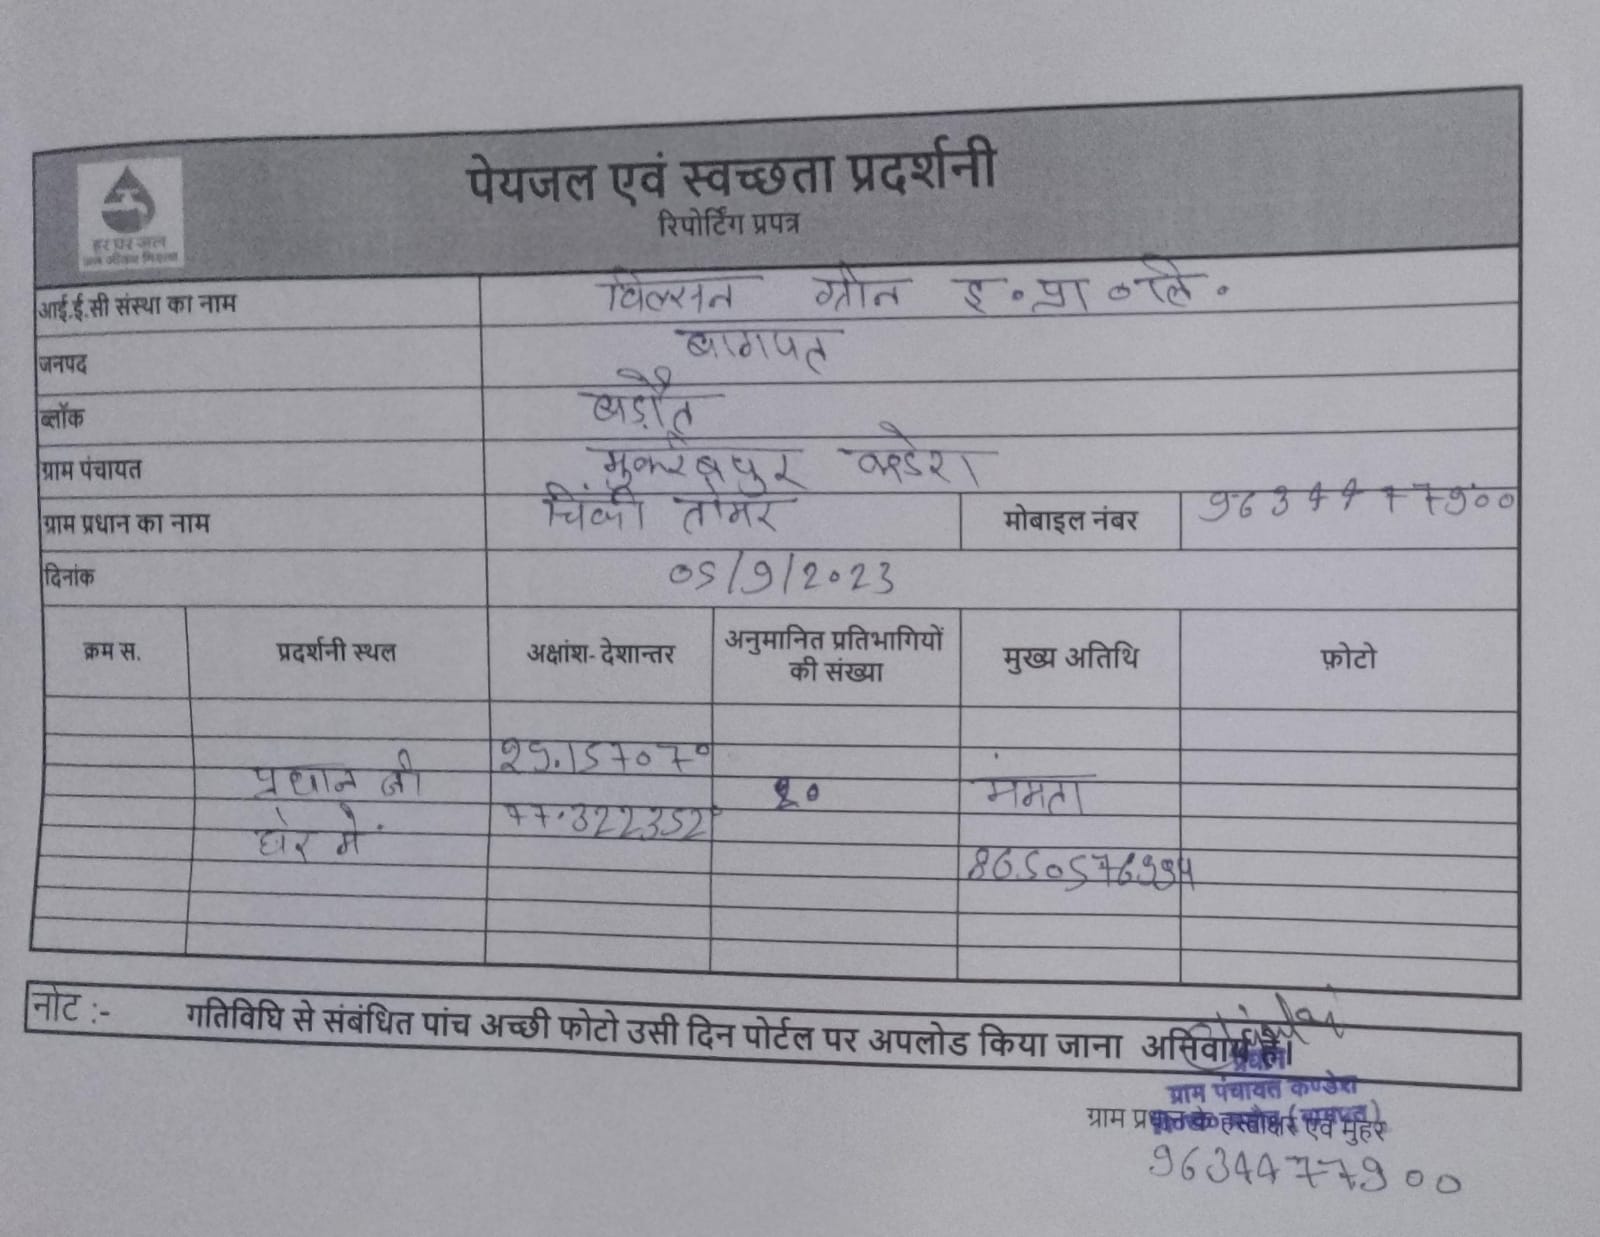 पेयजल एवं स्वच्छता प्रदर्शनी
रिपोर्टिंग प्रपत्र
हर घर जल
जल जीवन मिशन
आई.ई.सी संस्था का नाम विल्सन ग्रीन इ.प्रा०लि.
जनपद बागपत
ब्लॉक बड़ौत
ग्राम पंचायत मुकरबपुर कन्डेरा
ग्राम प्रधान का नाम चिंकी तोमर मोबाइल नंबर 9634477900
दिनांक 05/9/2023
क्रम स. प्रदर्शनी स्थल अक्षांश- देशान्तर अनुमानित प्रतिभागियों की संख्या मुख्य अतिथि फ़ोटो
प्रधान जी 29.157070 ममता
घेर में 77.322352°
नोट :- गतिविधि से संबंधित पांच अच्छी फोटो उसी दिन पोर्टल पर अपलोड किया जाना अनिवार्य है।
प्रधान
ग्राम पंचायत कण्डेरा
ग्राम प्रधान के हस्ताक्षर एवं मुहर
9634477900